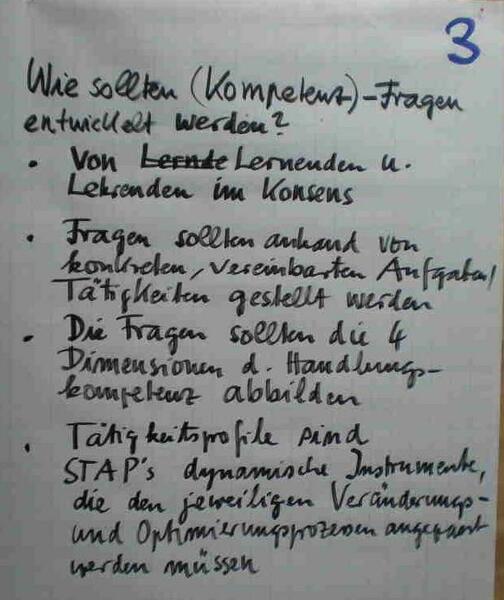 3
Wie sollten (Kompetenz)-Fragen
entwickelt werden?
• Von Lernde Lernenden u.
Lehrenden im Konsens
• Fragen sollten anhand von
konkreten, vereinbarten Aufgaben/
Tätigkeiten gestellt werden
• Die Fragen sollten die 4
Dimensionen d. Handlungs-
kompetenz abbilden
• Tätigkeitsprofile sind
STAP's dynamische Instrumente,
die den jeweiligen Veränderungs-
und Optimierungsprozessen angepasst
werden müssen